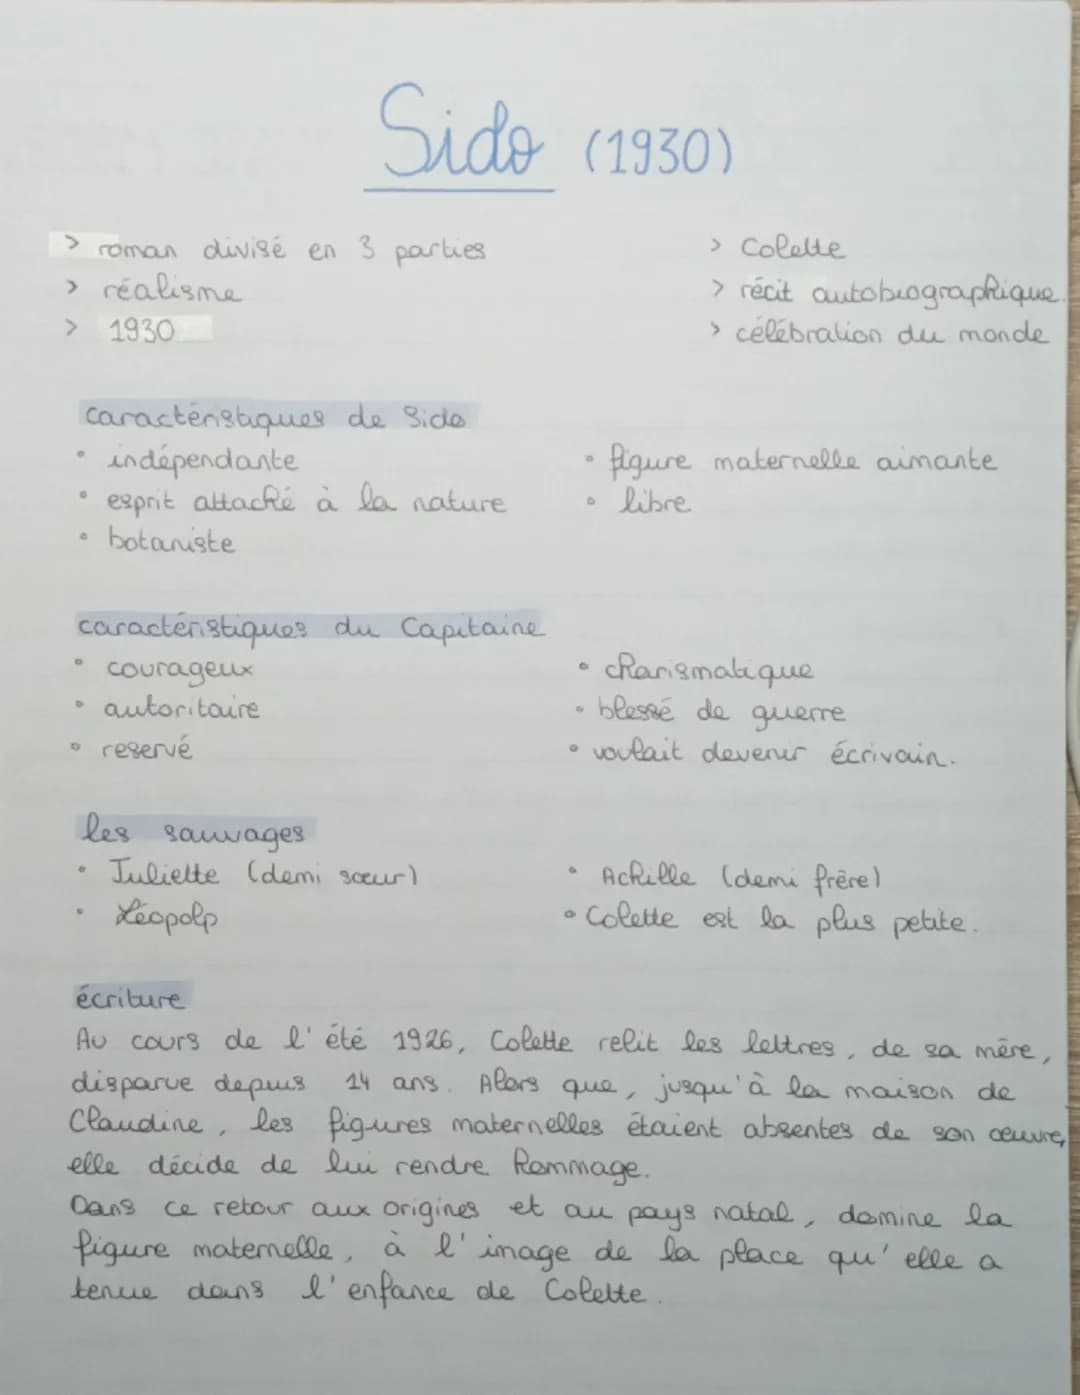 Sido (1930)
> roman divisé en 3 parties
> réalisme
> 1930
> Colette
> récit autobiographique.
> célébration du monde
caractéristiques de Sido
• indépendante
• esprit attaché à la nature
• botaniste
• figure maternelle aimante
• libre
caractéristiques du Capitaine
• courageux
• autoritaire
• reservé
• charismatique
• blessé de guerre
• voulait devenir écrivain.
les sauvages
• Juliette (demi sœur)
• Léopolp
• Achille (demi frère)
• Colette est la plus petite.
écriture
Au cours de l'été 1926, Colette relit les lettres, de sa mère,
disparue depuis 14 ans. Alors que, jusqu'à la maison de
Claudine, les figures maternelles étaient absentes de son œuvre,
elle décide de lui rendre hommage.
Dans ce retour aux origines et au pays natal, domine la
figure maternelle, à l'image de la place qu'elle a
tenue dans l'enfance de Colette.